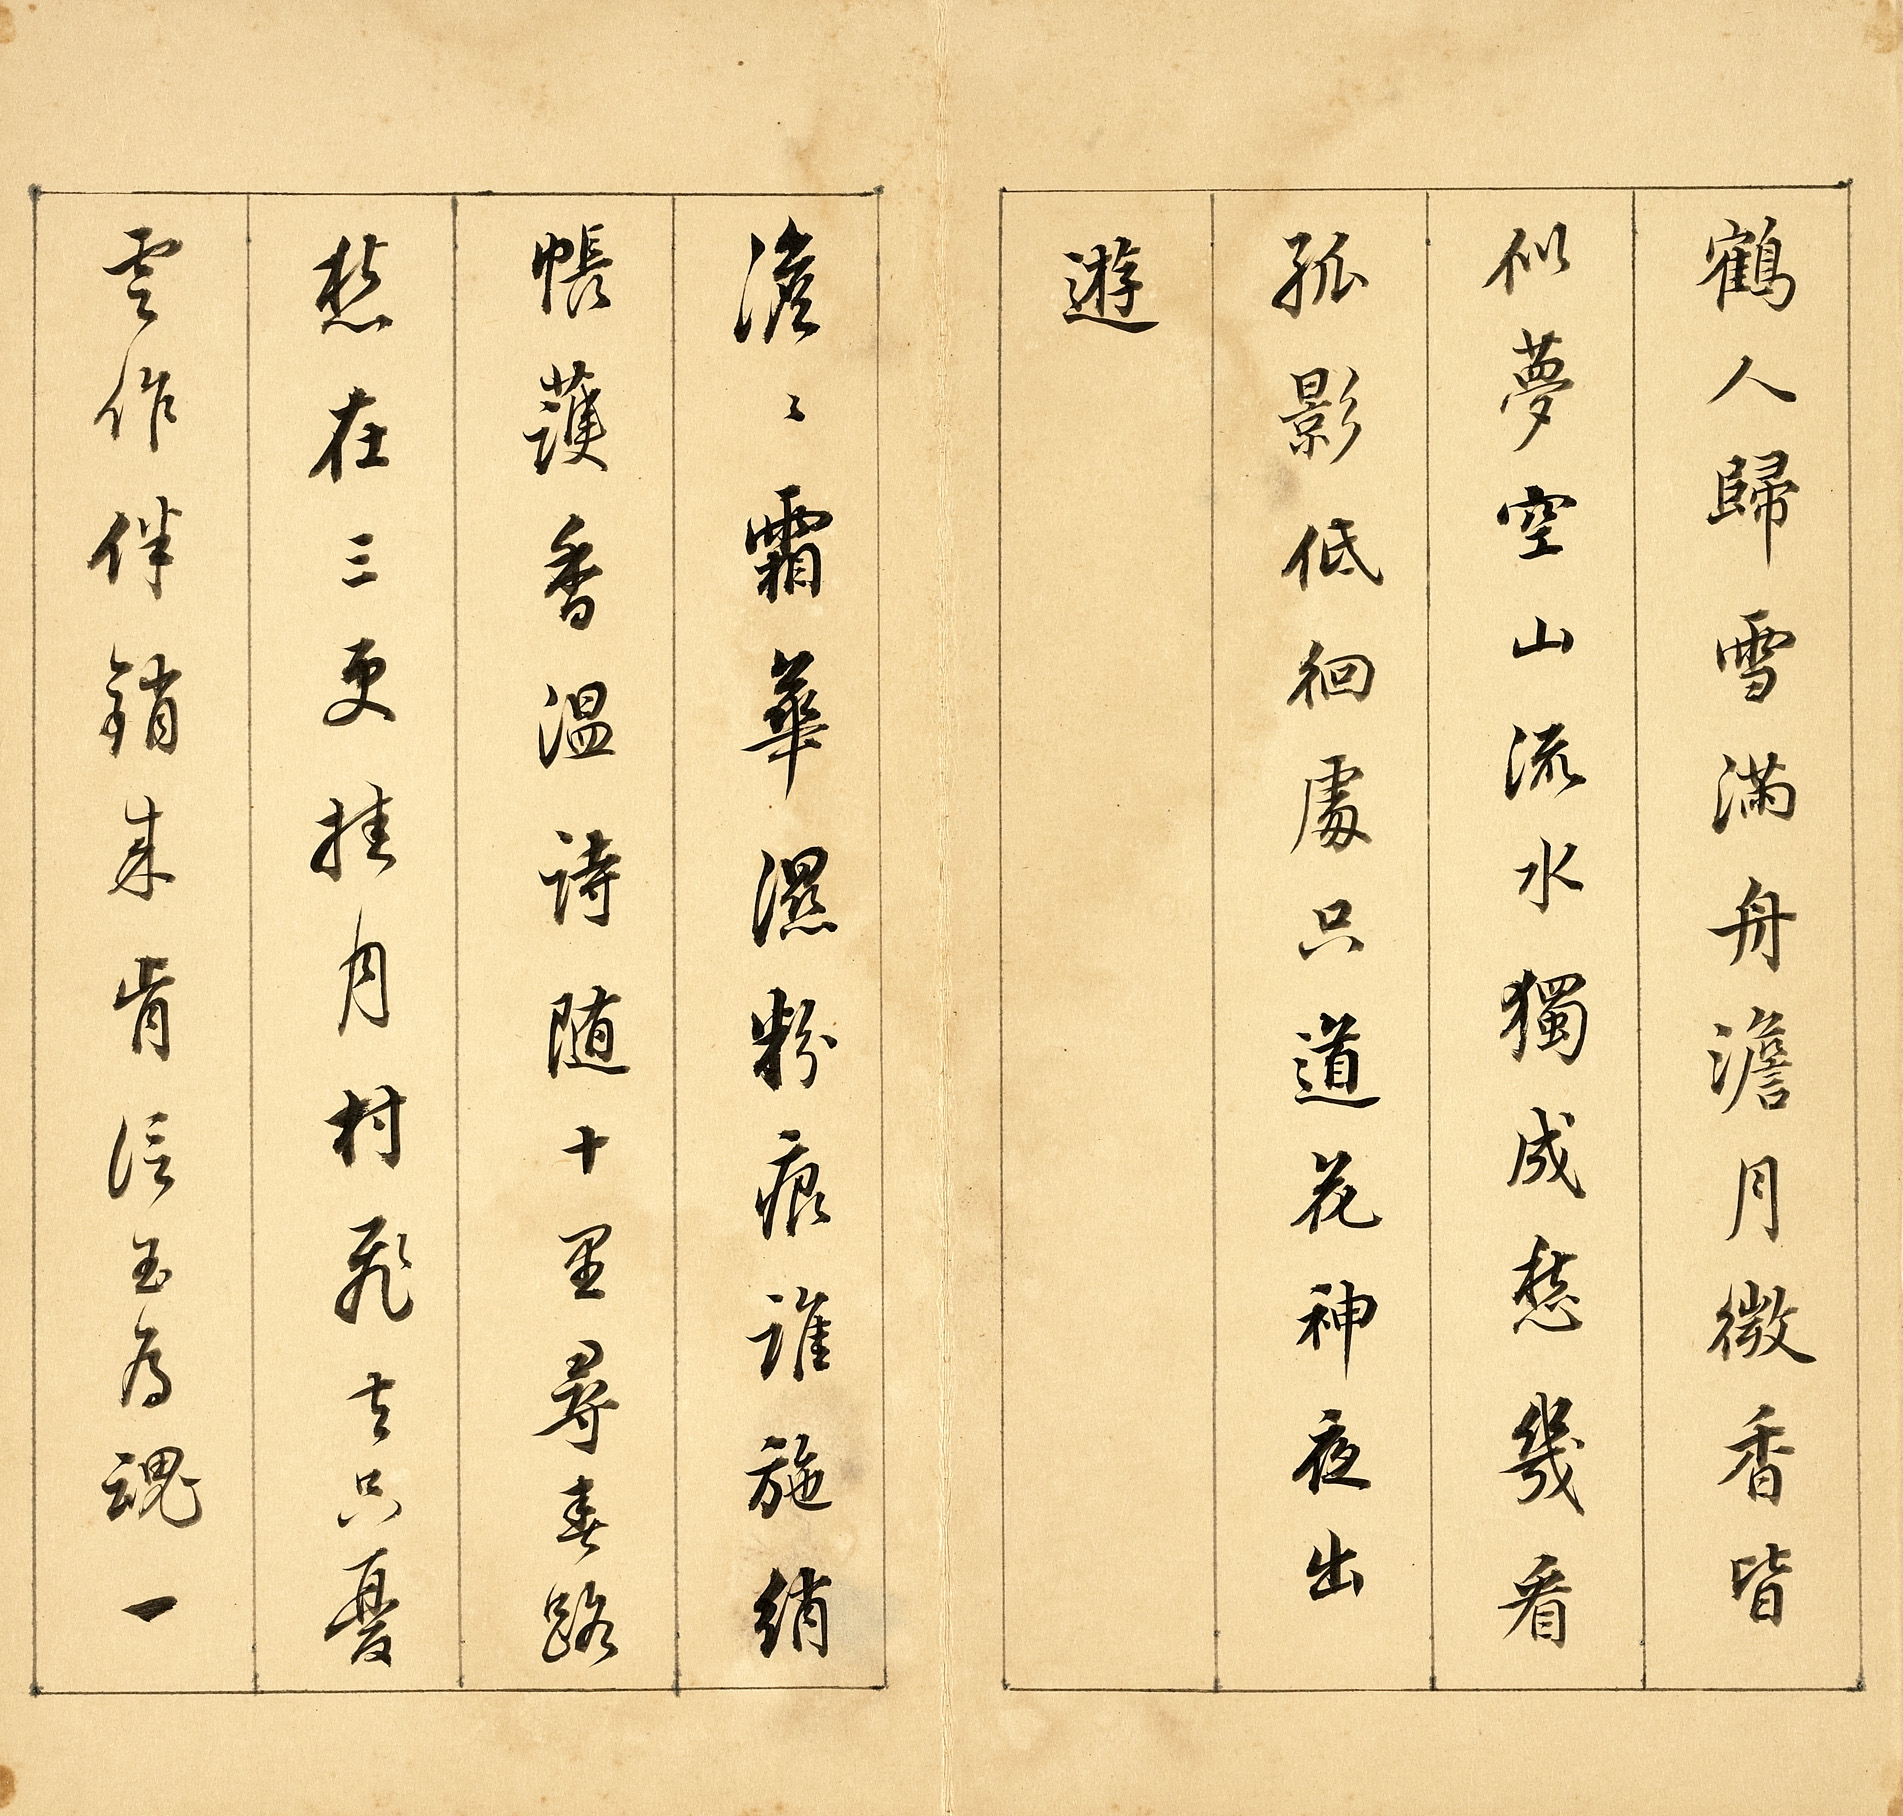 鶴人歸雪滿舟澹月微香皆
似夢空山流水獨成愁幾看
孤影低徊處只道花神夜出
遊
澹〻霜華濕粉痕誰施綃
帳護香温詩隨十里尋春路
愁在三更挂月村飛去只憂
雲作伴銷來肯信玉為魂一